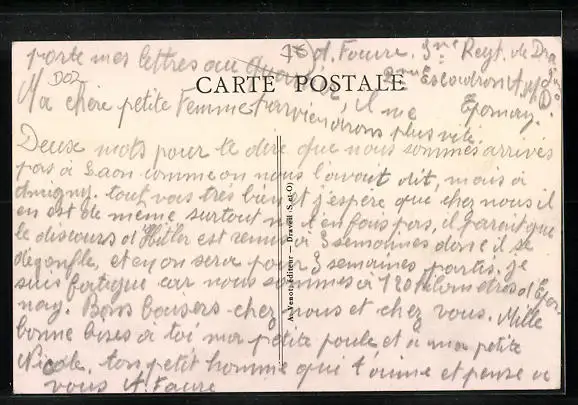 porte mes lettres au
A. Faure. 3me Regt. de Dra
CARTE POSTALE
Escadron
Epernay.
Ma chère petite Femme
parviendrons plus vite.
Deux mots pour te dire que nous sommes arrivés
pas à Laon comme on nous l'avait dit, mais à
tout vas très bien et j'espère que chez nous il
en est de même surtout ne t'en fais pas, il parait que
le discours d'Hitler est remis à 3 semaines donc il se
degonfle, et on sera pour 3 semaines partis. je
suis fatigué car nous sommes à 120 kilomètres d'Eper
nay. Bons baisers chez nous et chez vous. Mille
bonne bises à toi ma petite poule et à ma petite
Nicole. ton petit homme qui t'aime et pense à
vous A. Faure
A. Venot, éditeur — Draveil (S. et O)
DOZ